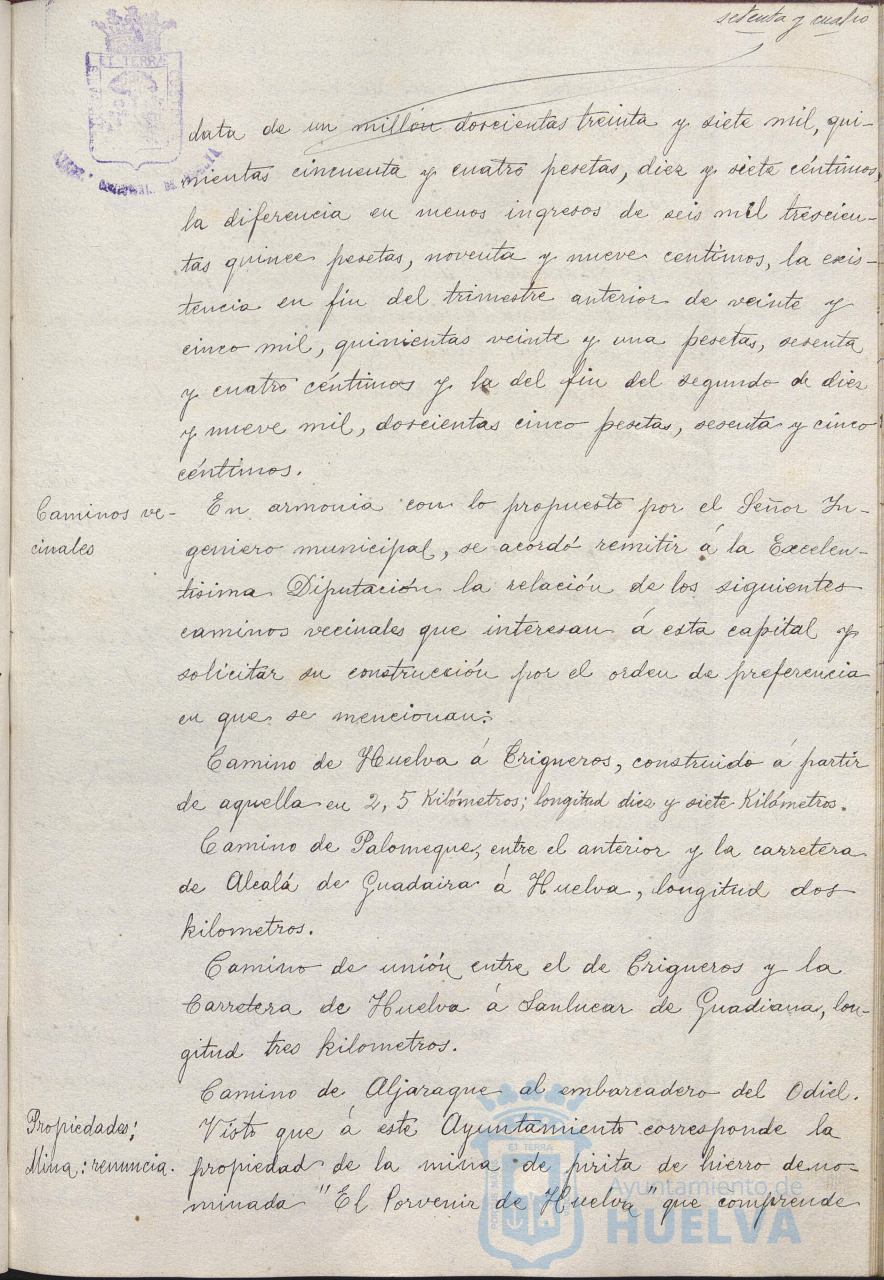 setenta y cuatro
ET TERRÆ
data de un millón doscientas treinta y siete mil, qui-
nientas cincuenta y cuatro pesetas, diez y siete céntimos,
la diferencia en menos ingresos de seis mil trescien-
tas quince pesetas, noventa y nueve centimos, la exis-
tencia en fin del trimestre anterior de veinte y
cinco mil, quinientas veinte y una pesetas, sesenta
y cuatro céntimos y la del fin del segundo de diez
y nueve mil, doscientas cinco pesetas, sesenta y cinco
céntimos.
Caminos ve-
cinales
En armonia con lo propuesto por el Señor In-
geniero municipal, se acordó remitir á la Excelen-
tisima Diputación la relación de los siguientes
caminos vecinales que interesan á esta capital y
solicitar su construcción por el orden de preferencia
en que se mencionan:
Camino de Huelva á Trigueros, construido á partir
de aquella en 2,5 Kilómetros; longitud diez y siete Kilómetros.
Camino de Palomeque, entre el anterior y la carretera
de Alcalá de Guadaira á Huelva, longitud dos
kilometros.
Camino de unión entre el de Trigueros y la
Carretera de Huelva á Sanlucar de Guadiana, lon-
gitud tres kilometros.
Camino de Aljaraque al embarcadero del Odiel.
Propiedades;
Mina: renuncia.
Visto que á este Ayuntamiento corresponde la
propiedad de la mina de pirita de hierro deno-
minada "El Porvenir de Huelva" que comprende
ET TERRA
Ayuntamiento de
HUELVA